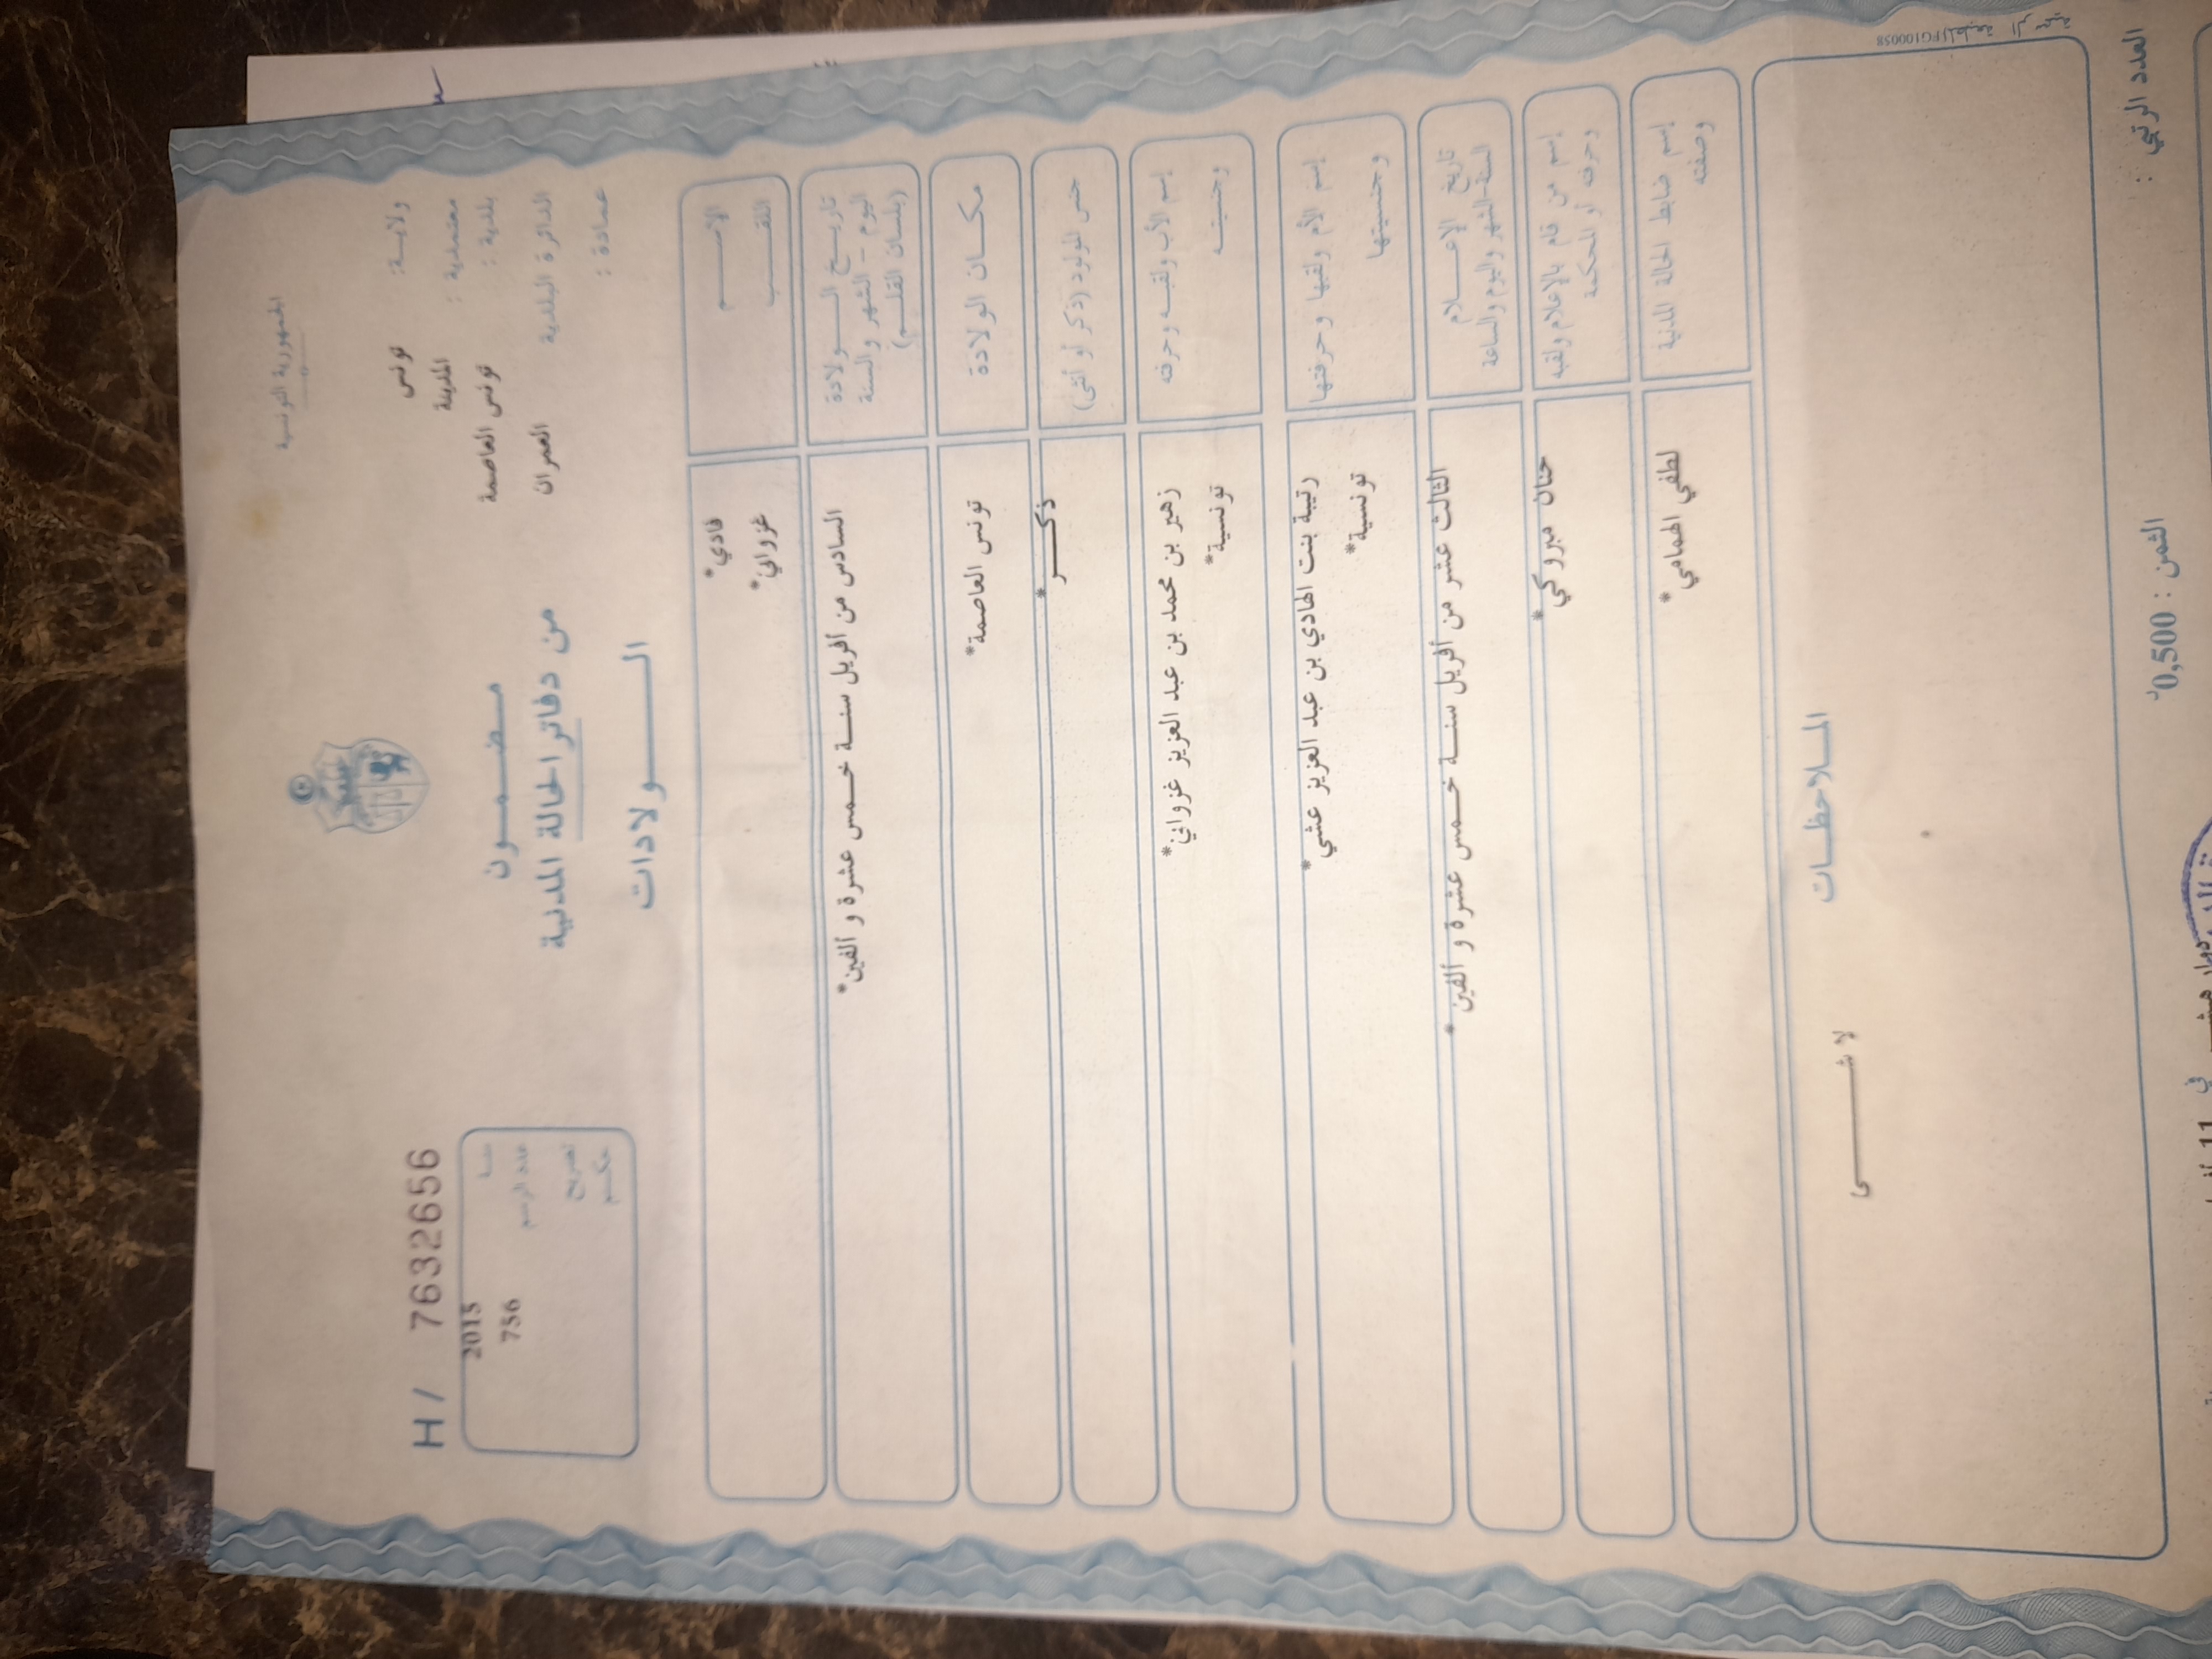 الجمهورية التونسية
ولاية: تونس
معتمدية: المدينة
بلدية: تونس العاصمة
الدائرة البلدية العمران
عمادة:
H/ 7632656
سنة 2015
عدد الرسم 756
تصريح
حكم
مضمون
من دفاتر الحالة المدنية
الولادات
الاسم فادي*
اللقب غزواني*
تاريخ الولادة
اليوم - الشهر والسنة
(بلسان القلم)
السادس من أفريل سنة خمس عشرة و ألفين*
مكان الولادة تونس العاصمة*
جنس المولود (ذكر أو أنثى) ذكر*
إسم الأب ولقبه وحرفته زهير بن محمد بن عبد العزيز غزواني*
وجنسيته تونسية*
إسم الأم ولقبها وحرفتها رتيبة بنت الهادي بن عبد العزيز عشي*
وجنسيتها تونسية*
تاريخ الإعلام
السنة-الشهر واليوم والساعة
الثالث عشر من أفريل سنة خمس عشرة و ألفين*
إسم من قام بالإعلام ولقبه حنان مبروكي*
وحرفته أو المحكمة
إسم ضابط الحالة المدنية لطفي الهمامي*
وصفته
الملاحظات
لا شيء
FG100058
العدد الرتبي :
الثمن : 0,500د
في 11